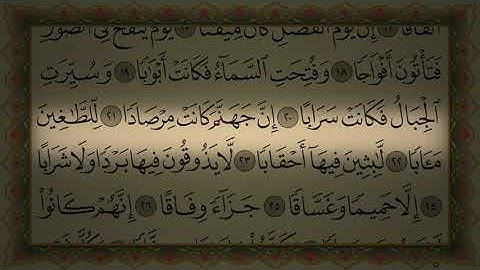 إِنَّ يَوْمَ ٱلْفَصْلِ كَانَ مِيقَٰتًا ١٧ يَوْمَ يُنفَخُ فِى ٱلصُّورِ
فَتَأْتُونَ أَفْوَاجًا ١٨ وَفُتِحَتِ ٱلسَّمَآءُ فَكَانَتْ أَبْوَٰبًا ١٩ وَسُيِّرَتِ
ٱلْجِبَالُ فَكَانَتْ سَرَابًا ٢٠ إِنَّ جَهَنَّمَ كَانَتْ مِرْصَادًا ٢١ لِّلطَّٰغِينَ
مَـَٔابًا ٢٢ لَّٰبِثِينَ فِيهَآ أَحْقَابًا ٢٣ لَّا يَذُوقُونَ فِيهَا بَرْدًا وَلَا شَرَابًا
٢٤ إِلَّا حَمِيمًا وَغَسَّاقًا ٢٥ جَزَآءً وِفَاقًا ٢٦ إِنَّهُمْ كَانُوا۟